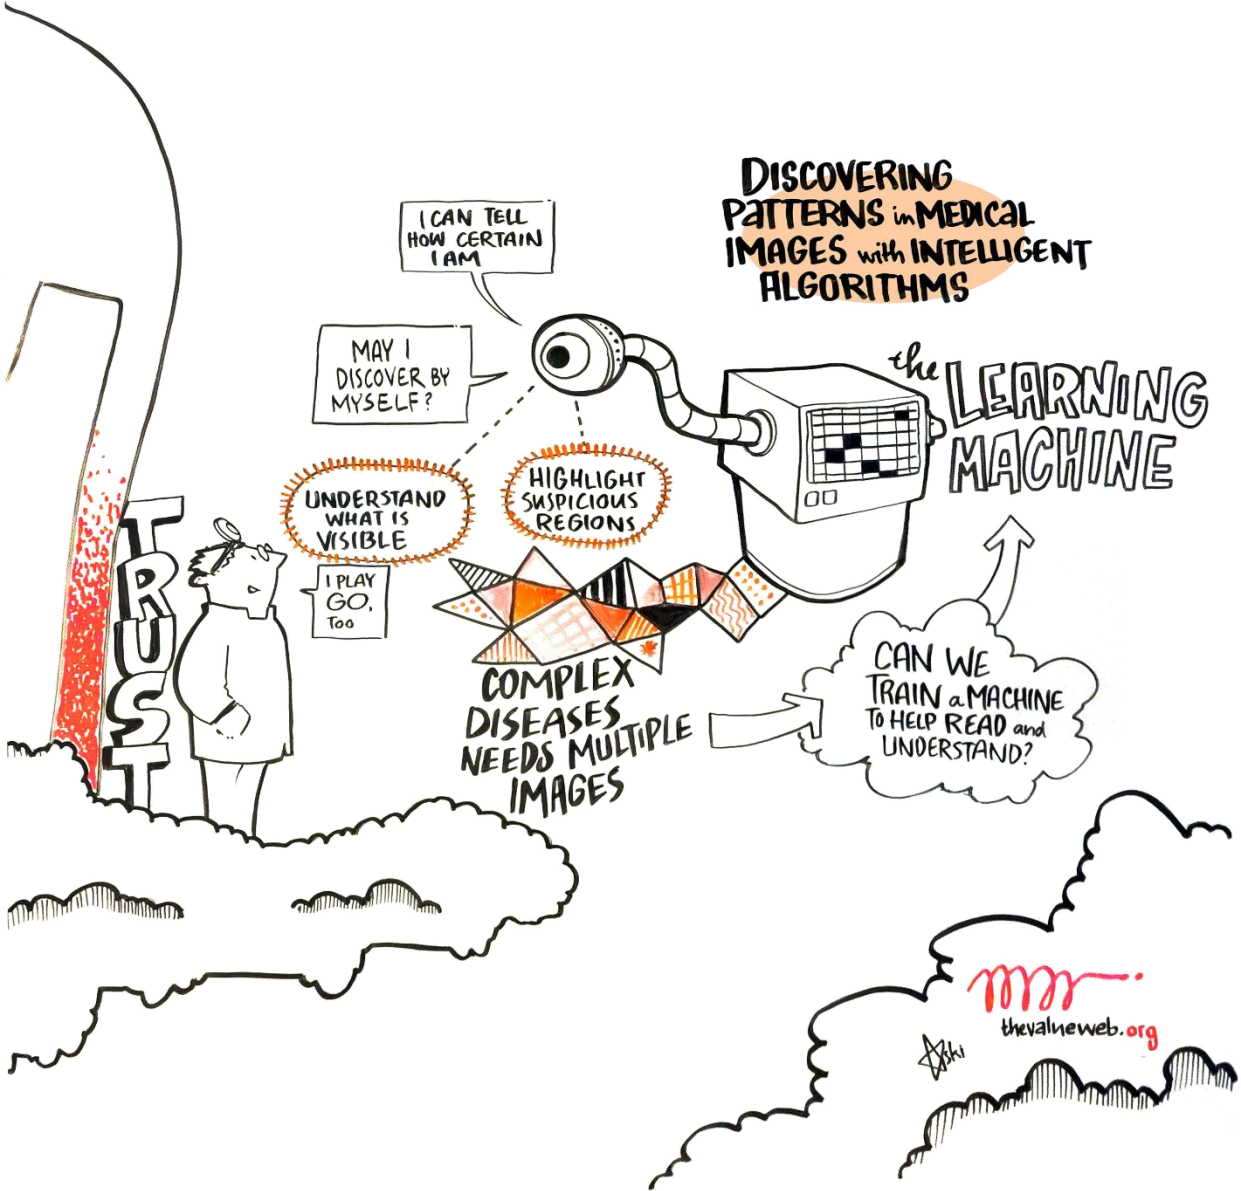 DISCOVERING
PATTERNS in MEDICAL
IMAGES with INTELLIGENT
ALGORITHMS
I CAN TELL
HOW CERTAIN
I AM
MAY I
DISCOVER BY
MYSELF?
the LEARNING
MACHINE
UNDERSTAND
WHAT IS
VISIBLE
HIGHLIGHT
SUSPICIOUS
REGIONS
TRUST
I PLAY
GO,
TOO
COMPLEX
DISEASES
NEEDS MULTIPLE
IMAGES
CAN WE
TRAIN a MACHINE
TO HELP READ and
UNDERSTAND?
thevalueweb.org